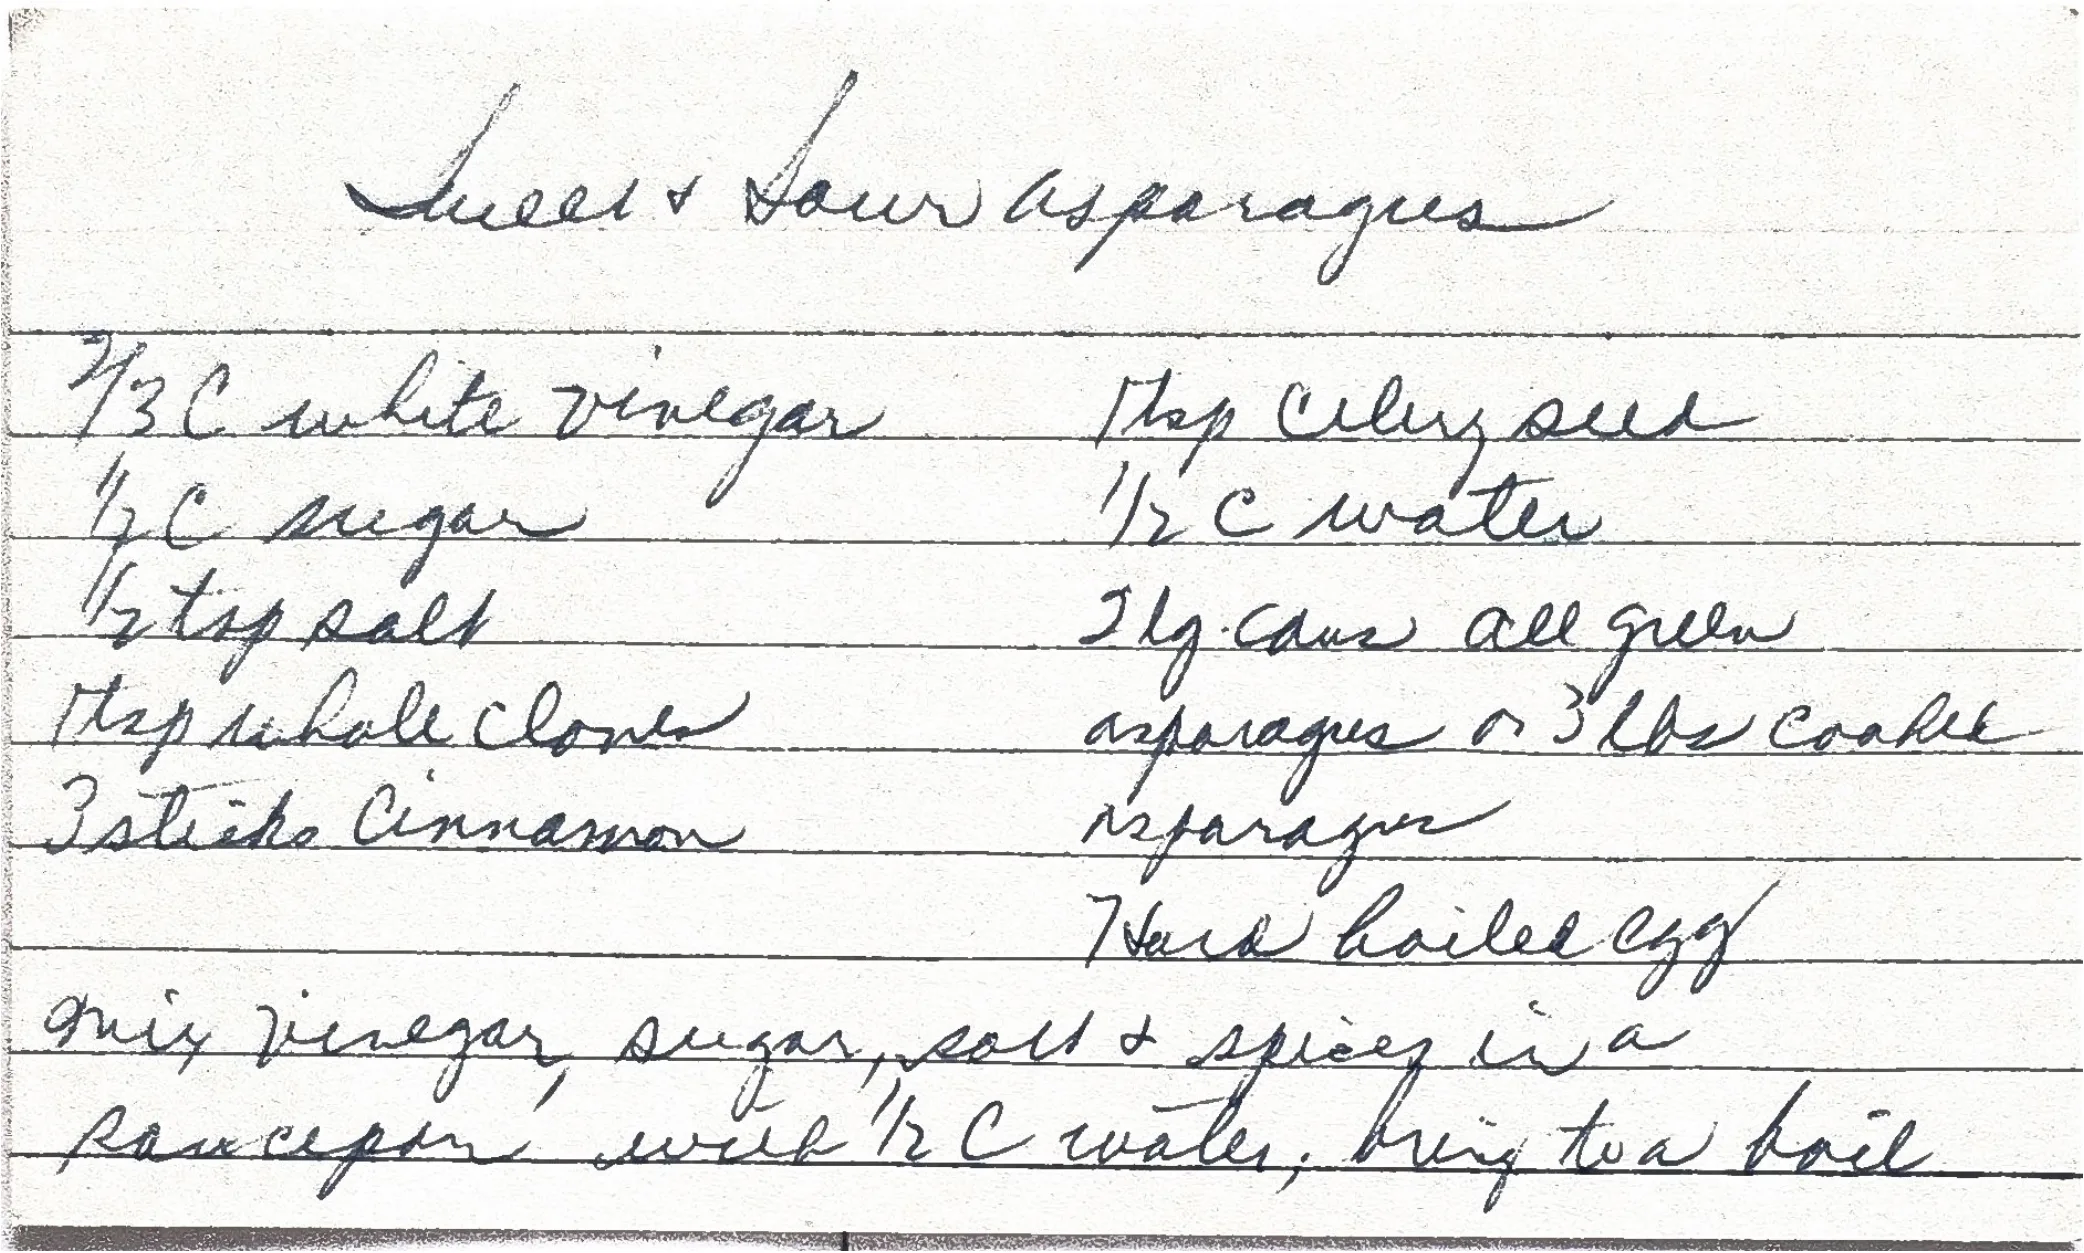 Sweet & Sour asparagus
2/3 C white vinegar
1/2 C sugar
1/2 tsp salt
1 tsp whole cloves
3 sticks Cinnamon
1 tsp Celery seed
1/2 C water
2 lg. cans all green
asparagus or 3 lbs cooked
asparagus
Hard boiled egg
mix vinegar, sugar, salt & spices in a
saucepan with 1/2 C water; bring to a boil